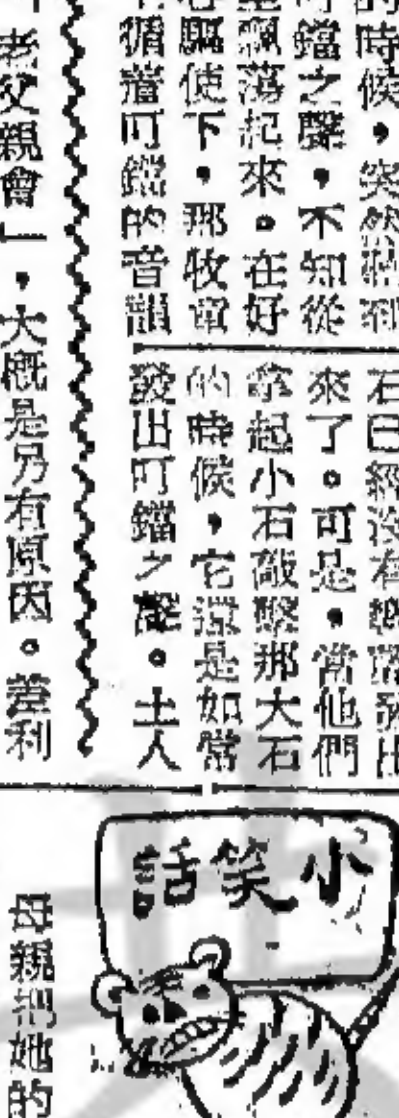 的時候，突然聽到
鐺之聲，不知從
飄蕩起來。在好
驅使下，那牧童
循着叮鐺的音韻
石已經沒有發出
來了。可是，當他們
拿起小石敲擊那大石
的時候，它還是如常
發出叮鐺之聲。土人
老父親會」，大概是另有原因。差利
小笑話
母親把她的